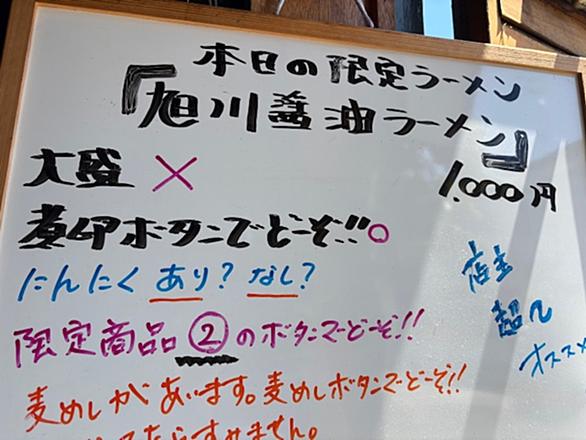 本日の限定ラーメン
『旭川醤油ラーメン』
1.000円
大盛 ×
煮卵ボタンでどーぞ!!○
にんにく あり? なし?
限定商品②のボタンでどーぞ!!
麦めしがあいます。麦めしボタンでどーぞ!!
たらすみません。
店主
超
オススメ